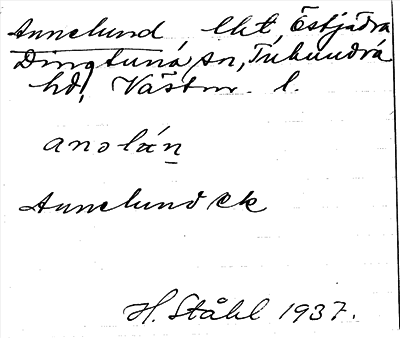 Annelund, lht, Östjädra
Dingtuna sn, Tuhundra
hd, Västm. l.
anolán
Annelund ek
H. Ståhl 1937.